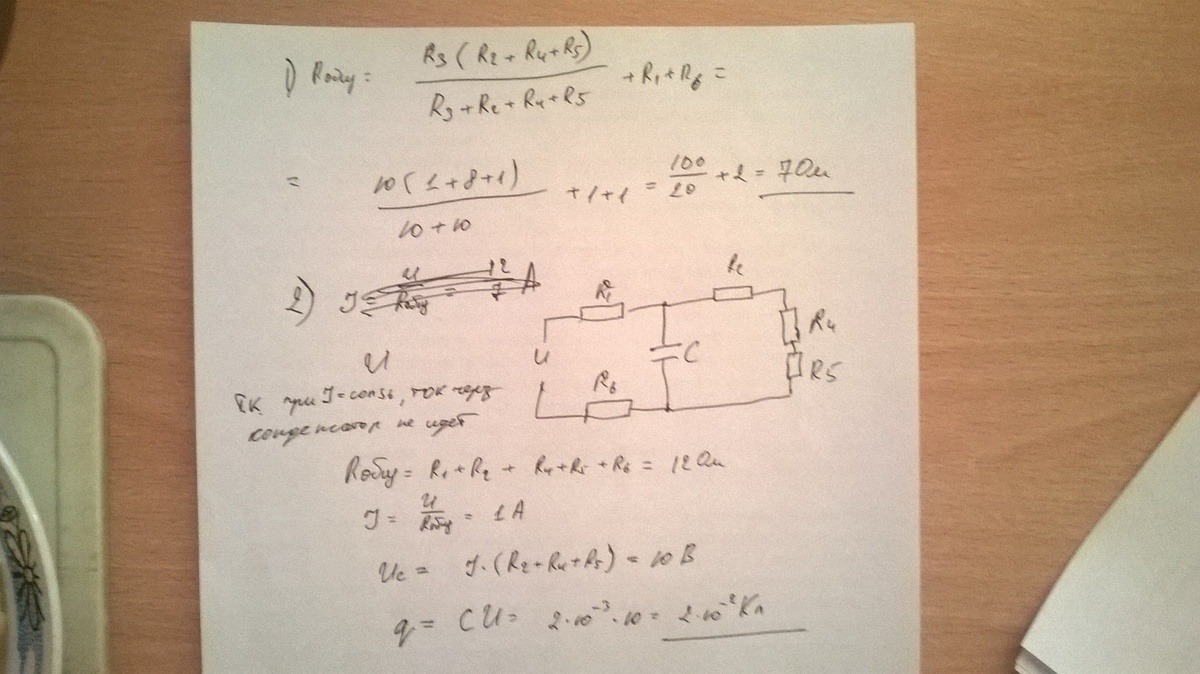 1) Rобщ = R3 (R2 + R4 + R5) / R3 + R2 + R4 + R5 + R1 + R6 =
= 10 (1 + 8 + 1) / 10 + 10 + 1 + 1 = 100 / 20 + 2 = 7 Ом
2) I = U / Rобщ = 12 / 7 A
R1
R2
U
C
R4
R5
R6
U
т.к. при I = const, ток через
конденсатор не идет
Rобщ = R1 + R2 + R4 + R5 + R6 = 12 Ом
I = U / Rобщ = 1 A
Uc = I · (R2 + R4 + R5) = 10 В
q = CU = 2·10⁻³ · 10 = 2·10⁻² Кл